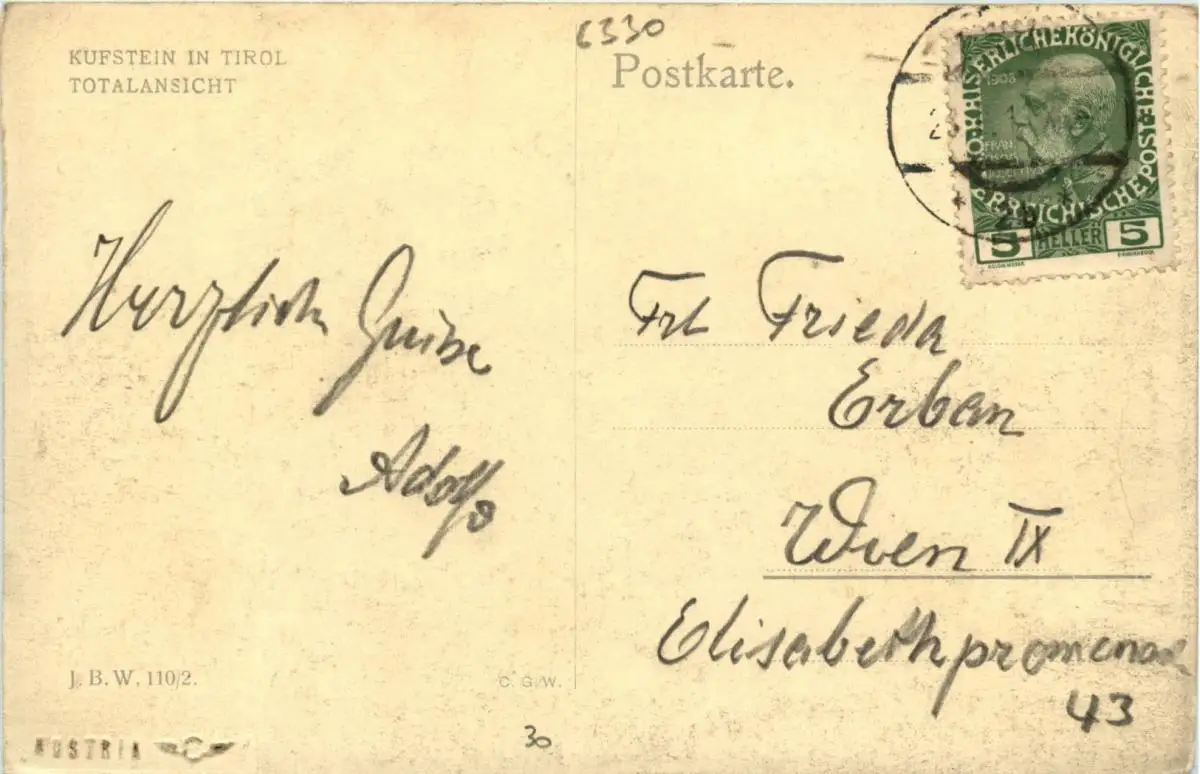 KUFSTEIN IN TIROL
TOTALANSICHT
6330
Postkarte.
KAISERLICHE KÖNIGLICHE
ÖSTERREICHISCHE POST
1908
5 HELLER 5
2b
Herzliche Grüße
Adolf
Frl Frieda
Erban
Wien IX
Elisabethpromenade
43
J. B. W. 110/2.
C. G. W.
30
AUSTRIA